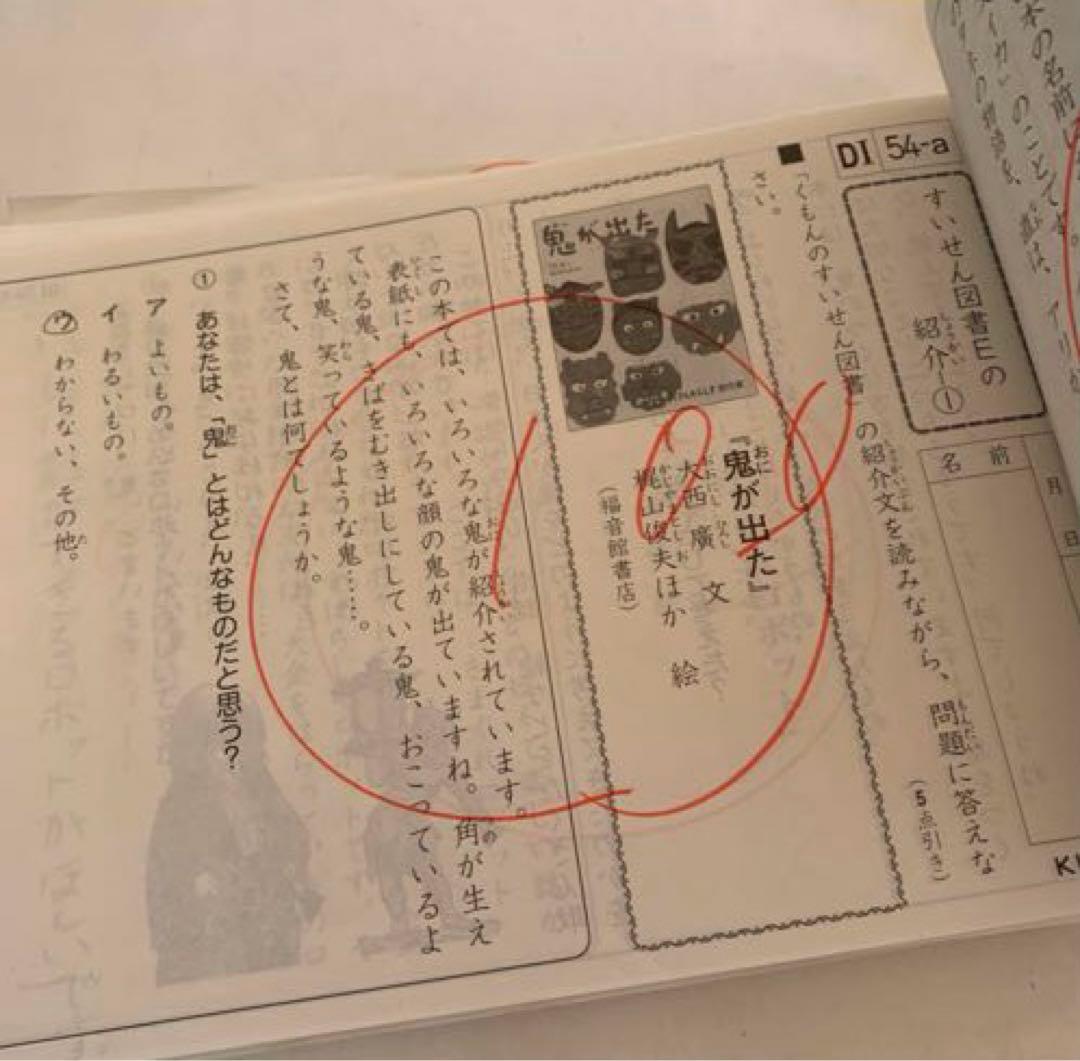 DI 54-a
すいせん図書Eの
紹介ー①
しょうかい
名前
月
日
■「くもんのすいせん図書」の紹介文を読みながら、問題に答えな
さい。
(5点引き)
鬼が出た
『鬼が出た』
おに
大西 廣 文
おおにし ひろし
梶山俊夫ほか 絵
かじやまとしお
(福音館書店)
100
この本では、いろいろな鬼が紹介されています。
表紙にも、いろいろな顔の鬼が出ていますね。角が生え
ている鬼、きばをむき出しにしている鬼、おこっているよ
うな鬼、笑っているような鬼……。
さて、鬼とは何でしょうか。
① あなたは、「鬼」とはどんなものだと思う?
ア よいもの。
イ わるいもの。
ウ わからない、その他。